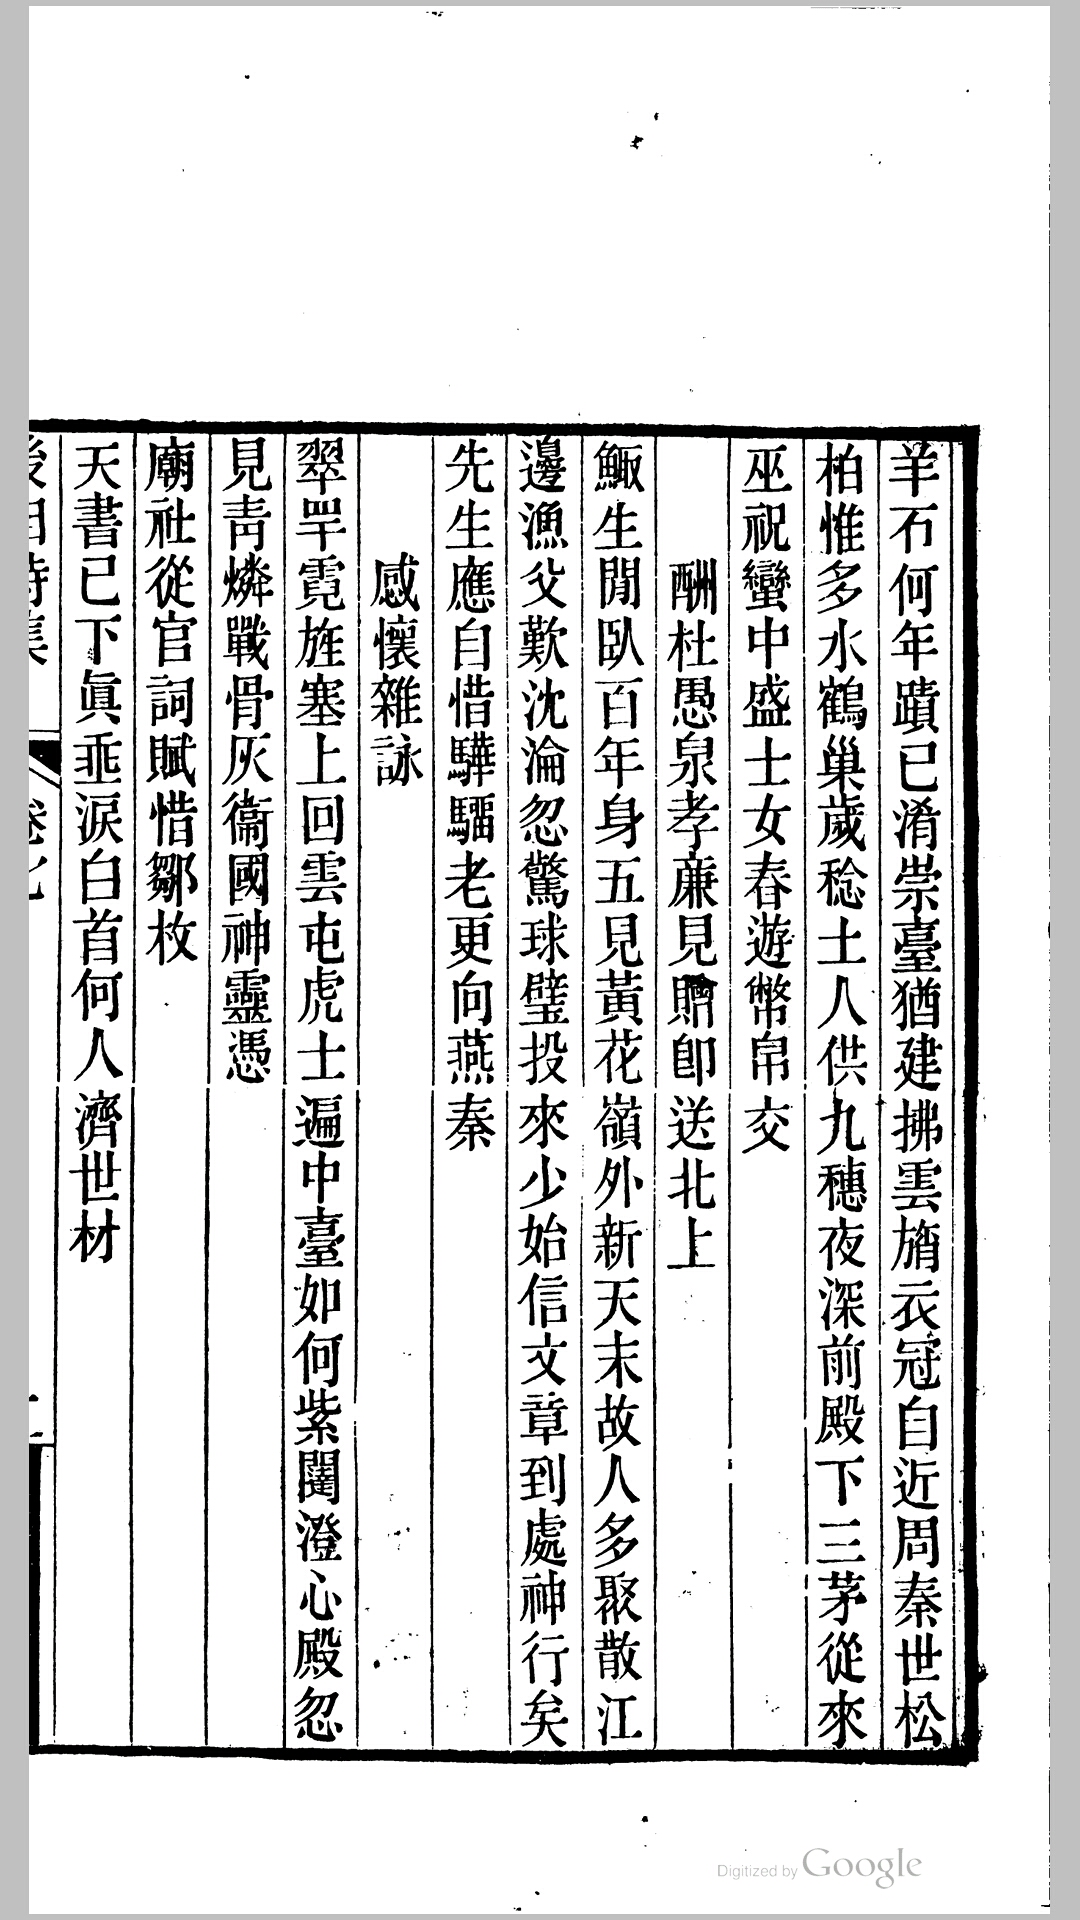 羊石何年蹟已淆崇臺猶建拂雲旓衣冠自近周秦世松
柏惟多水鶴巢歲稔土人供九穗夜深前殿下三茅從來
巫祝蠻中盛士女春遊幣帛交
酬杜愚泉孝廉見贈卽送北上
鯫生閒臥百年身五見黃花嶺外新天末故人多聚散江
邊漁父歎沈淪忽驚球璧投來少始信文章到處神行矣
先生應自惜驊騮老更向燕秦
感懷雜詠
翠罕霓旌塞上回雲屯虎士遍中臺如何紫闥澄心殿忽
見靑燐戰骨灰衞國神靈憑
廟社從官詞賦惜鄒枚
天書已下眞垂淚白首何人濟世材
Digitized by Google